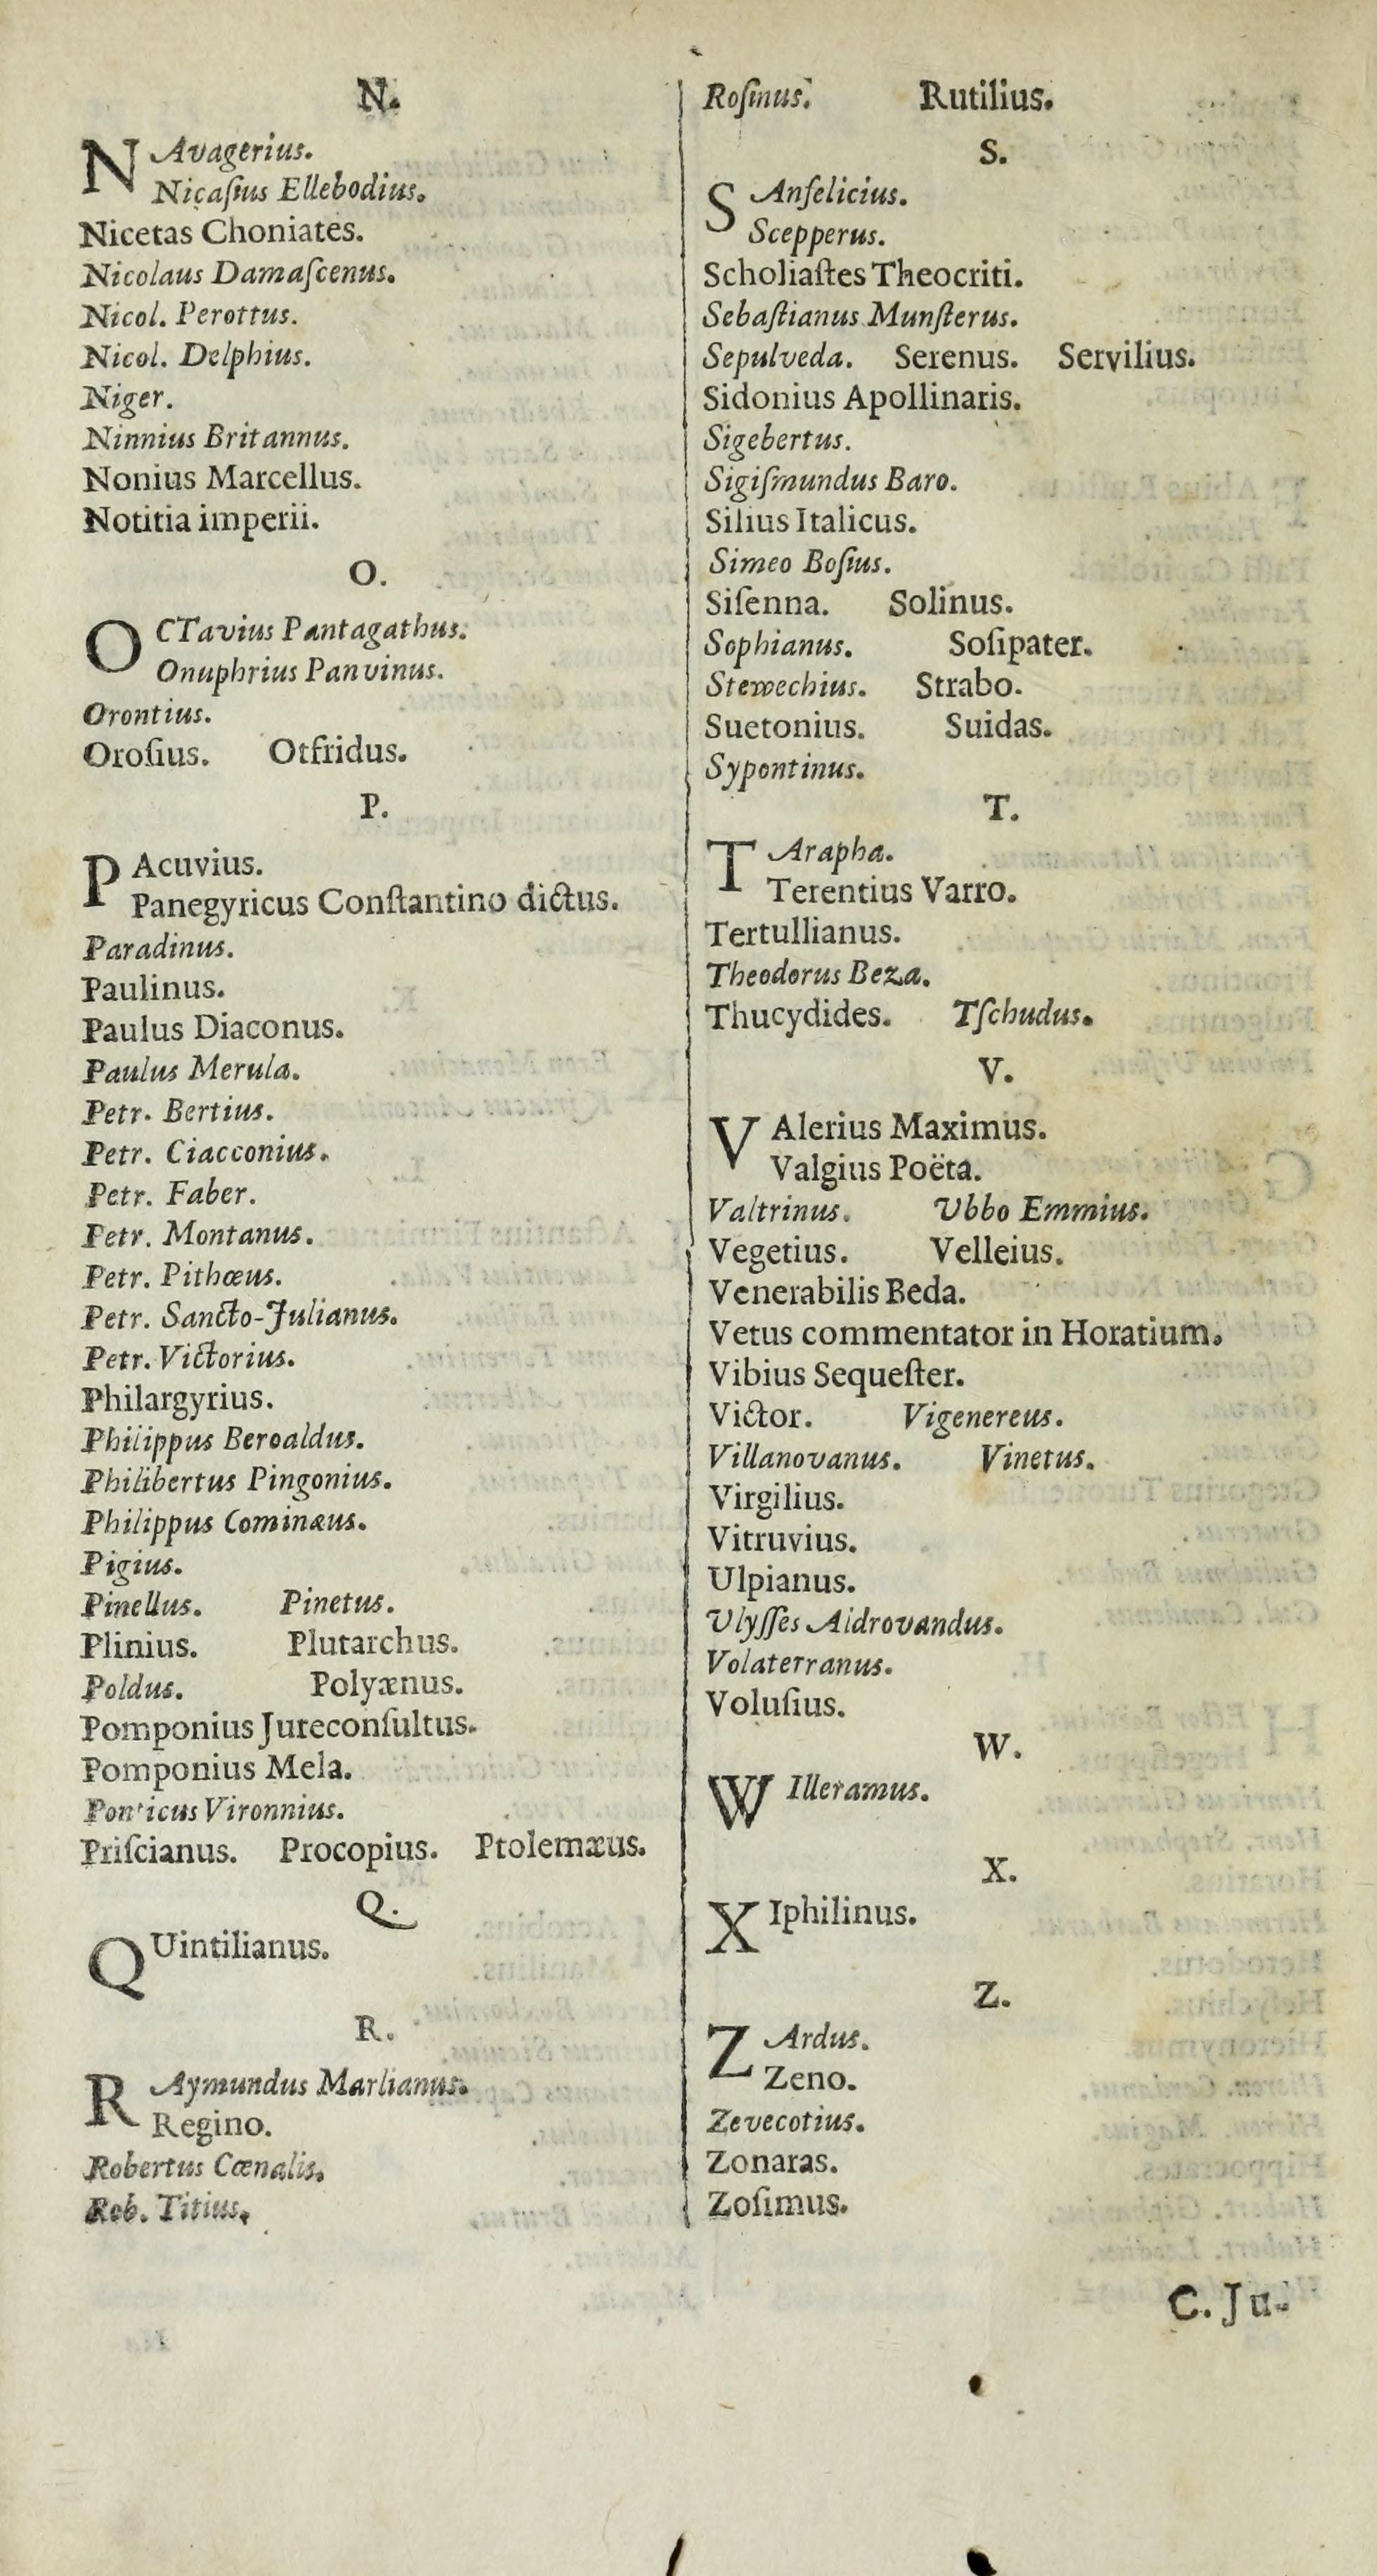 N.
NAvagerius.
Nicaſius Ellebodius.
Nicetas Choniates.
Nicolaus Damaſcenus.
Nicol. Perottus.
Nicol. Delphius.
Niger.
Ninnius Britannus.
Nonius Marcellus.
Notitia imperii.
O.
OCTavius Pantagathus.
Onuphrius Panvinus.
Orontius.
Oroſius. Otfridus.
P.
PAcuvius.
Panegyricus Conſtantino dictus.
Paradinus.
Paulinus.
Paulus Diaconus.
Paulus Merula.
Petr. Bertius.
Petr. Ciacconius.
Petr. Faber.
Petr. Montanus.
Petr. Pithœus.
Petr. Sancto-Julianus.
Petr. Victorius.
Philargyrius.
Philippus Beroaldus.
Philibertus Pingonius.
Philippus Cominæus.
Pigius.
Pinellus. Pinetus.
Plinius. Plutarchus.
Poldus. Polyænus.
Pomponius Jureconſultus.
Pomponius Mela.
Ponticus Vironnius.
Priſcianus. Procopius. Ptolemæus.
Q.
QUintilianus.
R.
RAymundus Marlianus.
Regino.
Robertus Cœnalis.
Rob. Titius.
Roſinus. Rutilius.
S.
SAnfelicius.
Scepperus.
Scholiaſtes Theocriti.
Sebaſtianus Munſterus.
Sepulveda. Serenus. Servilius.
Sidonius Apollinaris.
Sigebertus.
Sigiſmundus Baro.
Silius Italicus.
Simeo Boſius.
Siſenna. Solinus.
Sophianus. Soſipater.
Stewechius. Strabo.
Suetonius. Suidas.
Sypontinus.
T.
TArapha.
Terentius Varro.
Tertullianus.
Theodorus Beza.
Thucydides. Tſchudus.
V.
VAlerius Maximus.
Valgius Poëta.
Valtrinus. Vbbo Emmius.
Vegetius. Velleius.
Venerabilis Beda.
Vetus commentator in Horatium.
Vibius Sequeſter.
Victor. Vigenereus.
Villanovanus. Vinetus.
Virgilius.
Vitruvius.
Ulpianus.
Vlyſſes Aldrovandus.
Volaterranus.
Voluſius.
W.
WIlleramus.
X.
XIphilinus.
Z.
ZArdus.
Zeno.
Zevecotius.
Zonaras.
Zoſimus.
C. Ju-